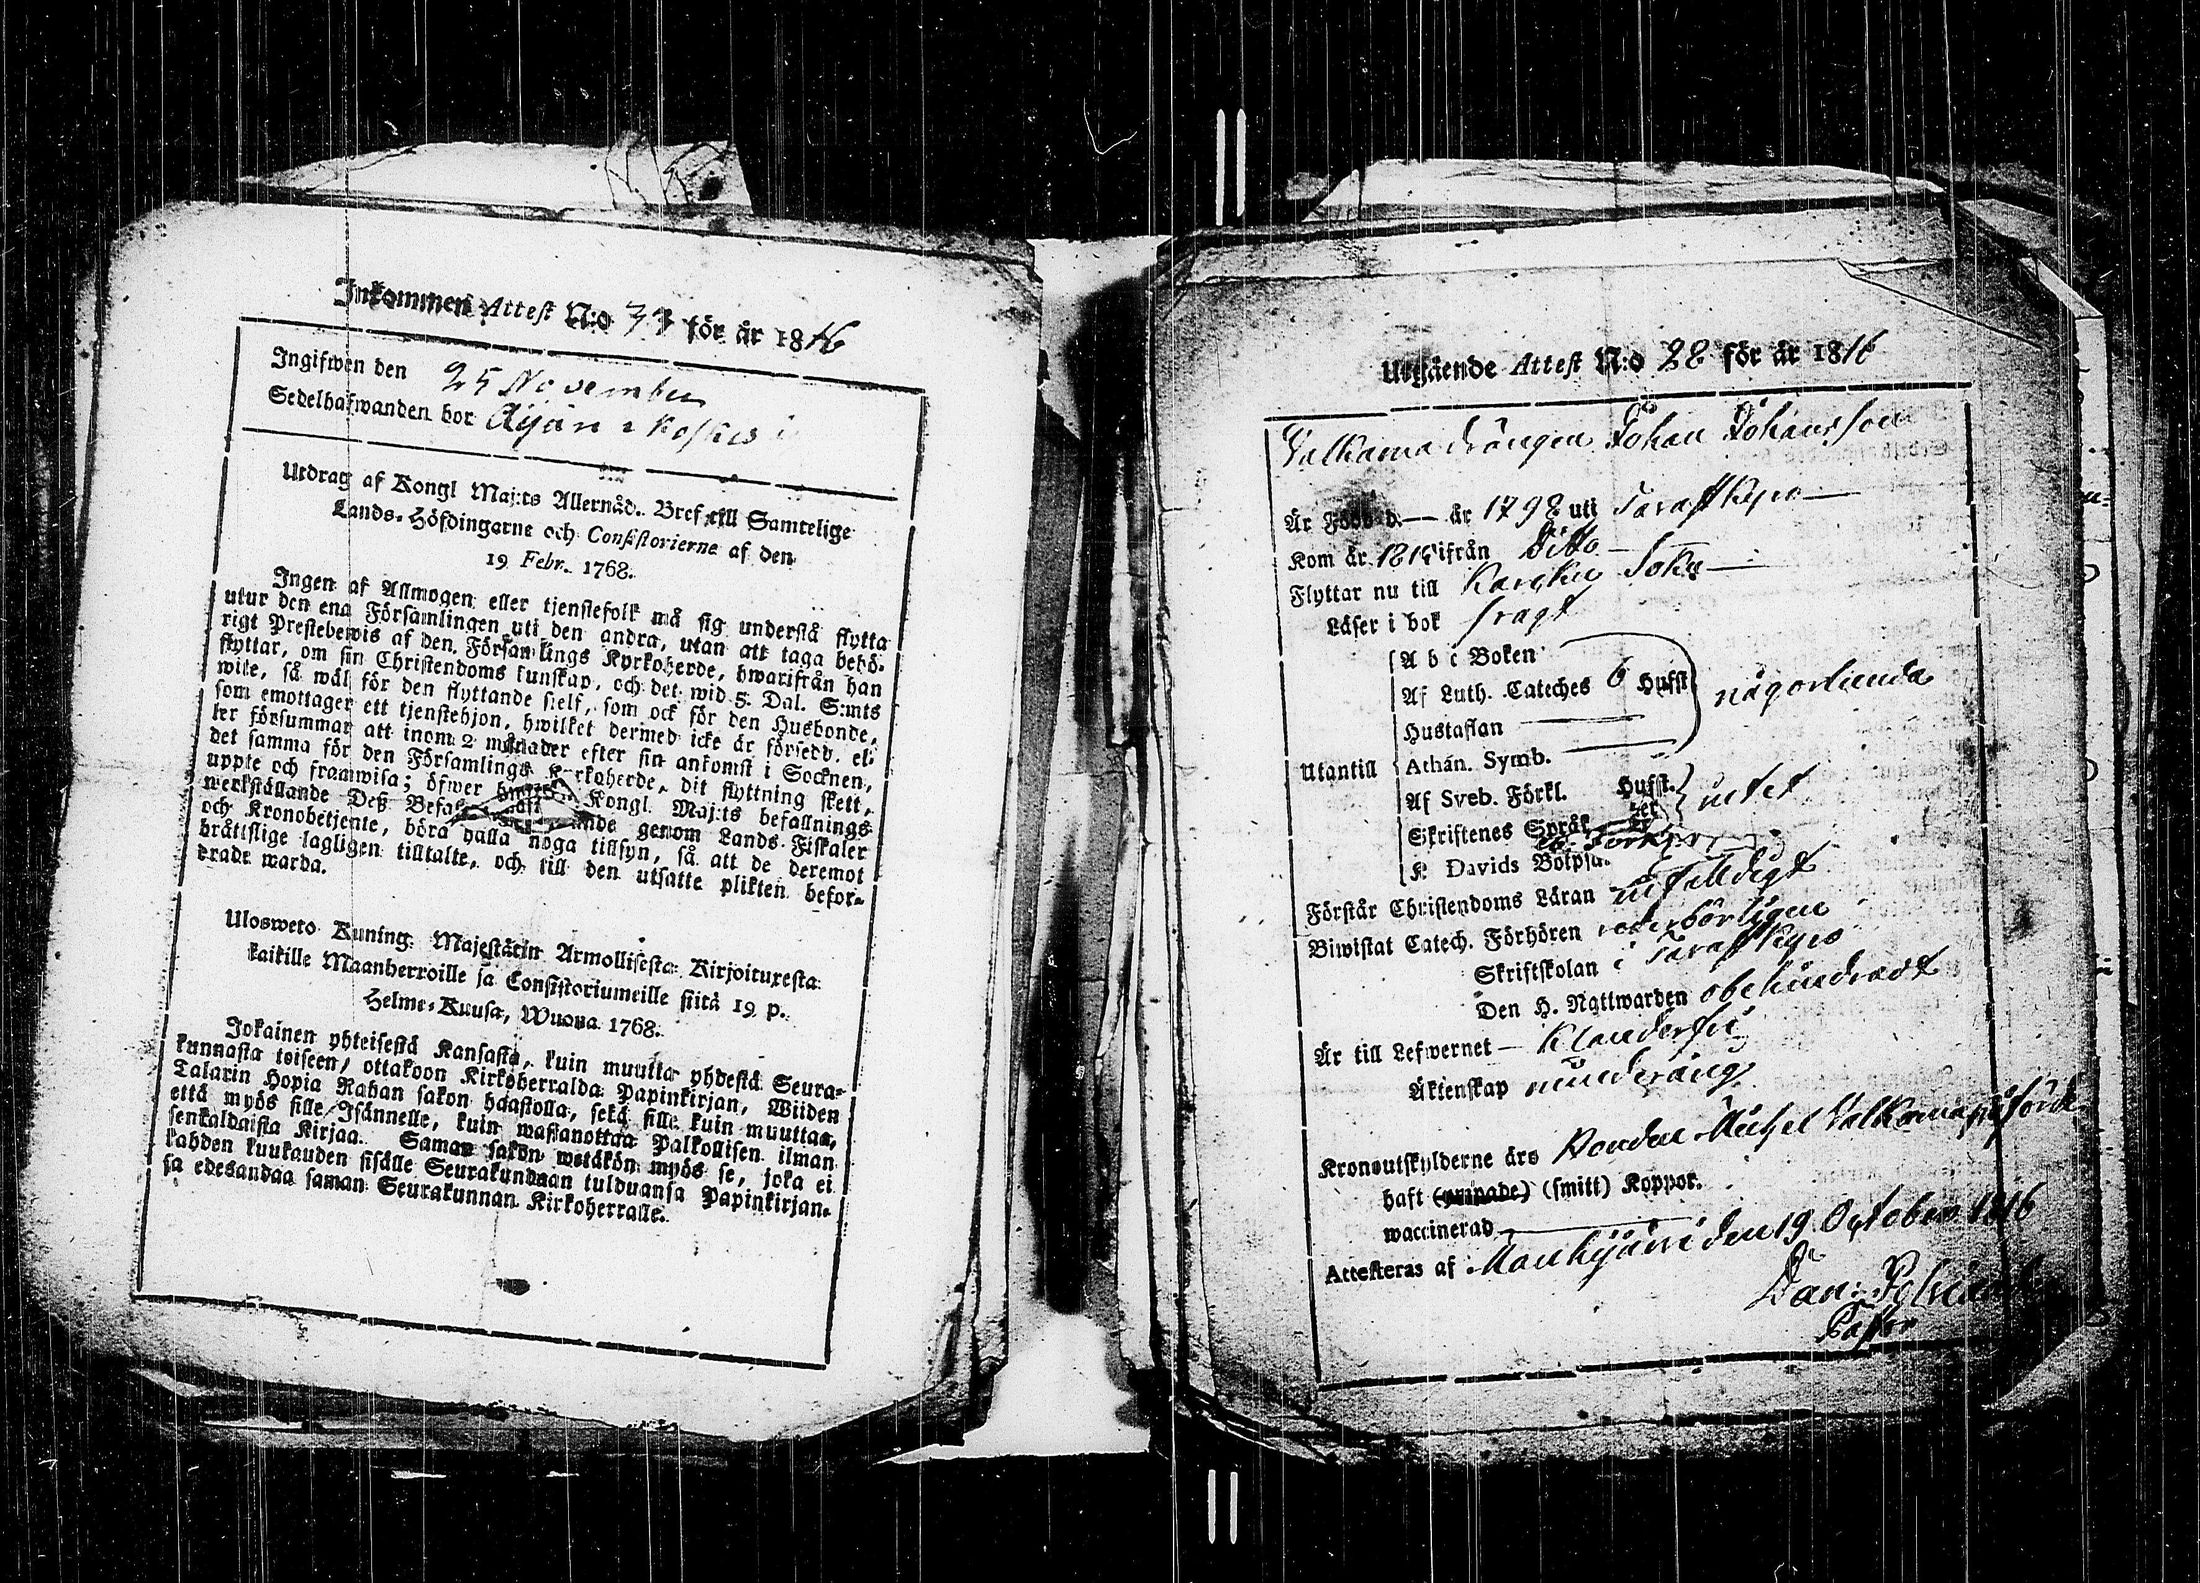 Inkommen Attest N:o 33 för år 1816
Ingifwen den 25 November
Sedelhafwanden bor
Utdrag af Kongl Maj:ts Allernåd. Bref till Samtelige
Lands-Höfdingarne och Consistorierne af den
19 Febr. 1768.
Ingen af Allmogen eller tjenstefolk må sig understå flytta
utur den ena Församlingen uti den andra, utan att taga behö-
rigt Prestebewis af den Församlings Kyrkoherde, hwarifrån han
flyttar, om sin Christendoms kunskap, och det wid 5 Dal. S:mts
wite, så wäl för den flyttande sielf, som ock för den Husbonde,
som emottager ett tjenstehjon, hwilket dermed icke är försedd, el-
ler försummar att inom 2 månader efter sin ankomst i Socknen,
det samma för den Församlings Kyrkoherde, dit flyttning skett,
uppte och framwisa; öfwer Kongl. Maj:ts befallnings
werkställande Deß genom Lands Fiskaler
och Kronobetjente, böra halla noga tillsyn, så att de deremot
bråttslige lagligen tilltalte, och till den utsatte plikten befor-
drade warda.
Ulosweto Kuning. Majestätin Armollisesta Kirjoituxesta
kaikille Maanherroille ja Consistoriumeille siitä 19 p.
Helme-Kuusa, Wuona 1768.
Jokainen yhteisestä Kansasta, kuin muutta yhdestä Seura-
kunnasta toiseen, ottakoon Kirkoherralda Papinkirjan, Wiiden
Talarin Hopia Rahan sakon haastolla, sekä sille kuin muuttaa,
että myös sille Isännelle, kuin wastanottaa Palkollisen ilman
senkaldaista Kirjaa. Saman sakon wetäkön myös se, joka ei
kahden kuukauden sisälle Seurakundaan tulduansa Papinkirjan-
sa edesandaa saman Seurakunnan Kirkoherralle.
Utgående Attest N:o 28 för år 1816
Valkama drängen Johan Johansson
Är Född d. — år 1798 uti Tavastkyro —
Kom år 181 ifrån Ditto —
Flyttar nu till Karcku Sokn —
Läser i bok svagt
A b c Boken
Af Luth. Cateches 6 Hufst någorlunda
Hustaflan —
Utantill Athan. Symb. —
Af Sveb. Förkl. Hufst. intet
Skriftenes Språk
K Davids Botpsa.
Förstår Christendoms Läran enfalldigt
Biwistat Catech. Förhören wederbörligen
Skriftskolan i Tavastkyro
Den H. Nattwarden obehindradt
Är till Lefwernet — Klanderfri
Äktenskap
Kronoutskylderne äro Bonden Michel Valkama
haft (smitt) Koppor.
waccinerad —
Attesteras af Mouhijärvi den 19 October 1816
Dan:
Pastor